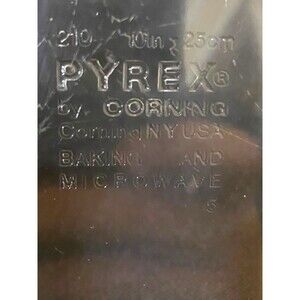 210 10in x 25cm
PYREX®
by CORNING
Corning NY USA
BAKING AND
MICROWAVE
5